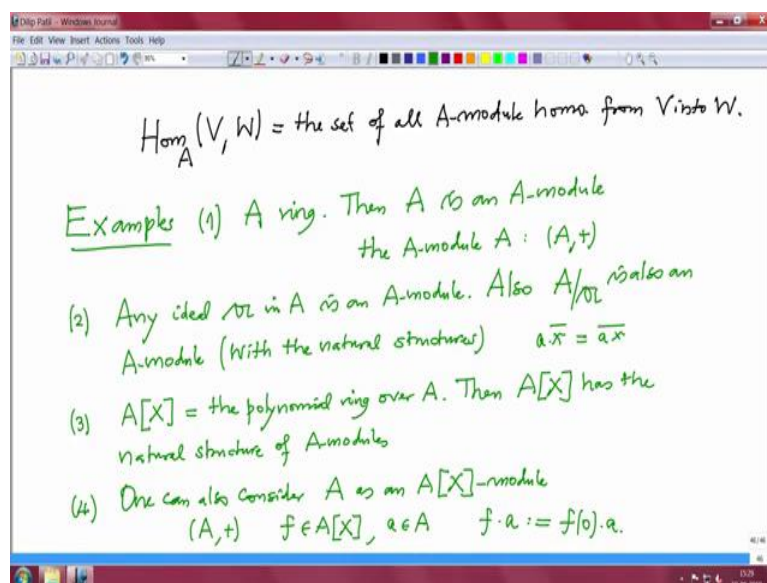 Dilip Patil - Windows Journal
File Edit View Insert Actions Tools Help
Hom_A (V, W) = the set of all A-module homo. from V into W.
Examples (1) A ring. Then A is an A-module
the A-module A : (A,+)
(2) Any ideal 𝔞 in A is an A-module. Also A/𝔞 is also an
A-module (with the natural structures) a·x̄ = \overline{ax}
(3) A[X] = the polynomial ring over A. Then A[X] has the
natural structure of A-modules
(4) One can also consider A as an A[X]-module
(A,+) f ∈ A[X], a ∈ A f·a := f(0)·a.
46/46
46
15:29